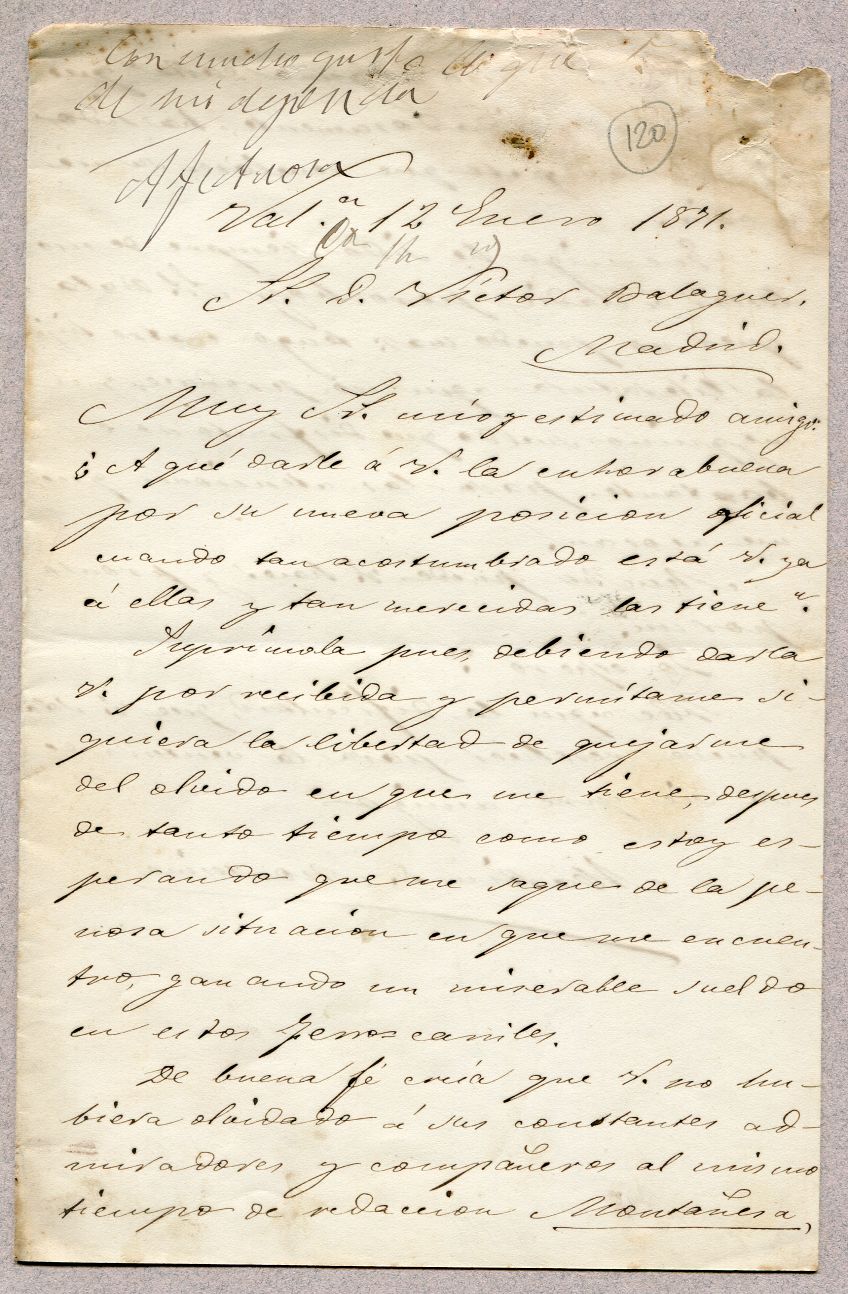 Con mucho gusto lo que
de mi dependa
Afectuosa
120
Val.ª 12 Enero 1871.
Sr. D. Víctor Balaguer.
Madrid.
Muy Sr. mio y estimado amigo:
¿A qué darle á V. la enhorabuena
por su nueva posicion oficial
cuando tan acostumbrado está V. ya
á ellas y tan merecidas las tiene?.
Suprímola pues, debiendo darla
V. por recibida y permítame si-
quiera la libertad de quejarme
del olvido en que me tiene, despues
de tanto tiempo como estoy es-
perando que me saque de la pe-
nosa situacion en que me encuen-
tro, ganando un miserable sueldo
en estos ferros carriles.
De buena fé creía que V. no hu-
biera olvidado á sus constantes ad-
miradores y compañeros al mismo
tiempo de redaccion Montañesa,